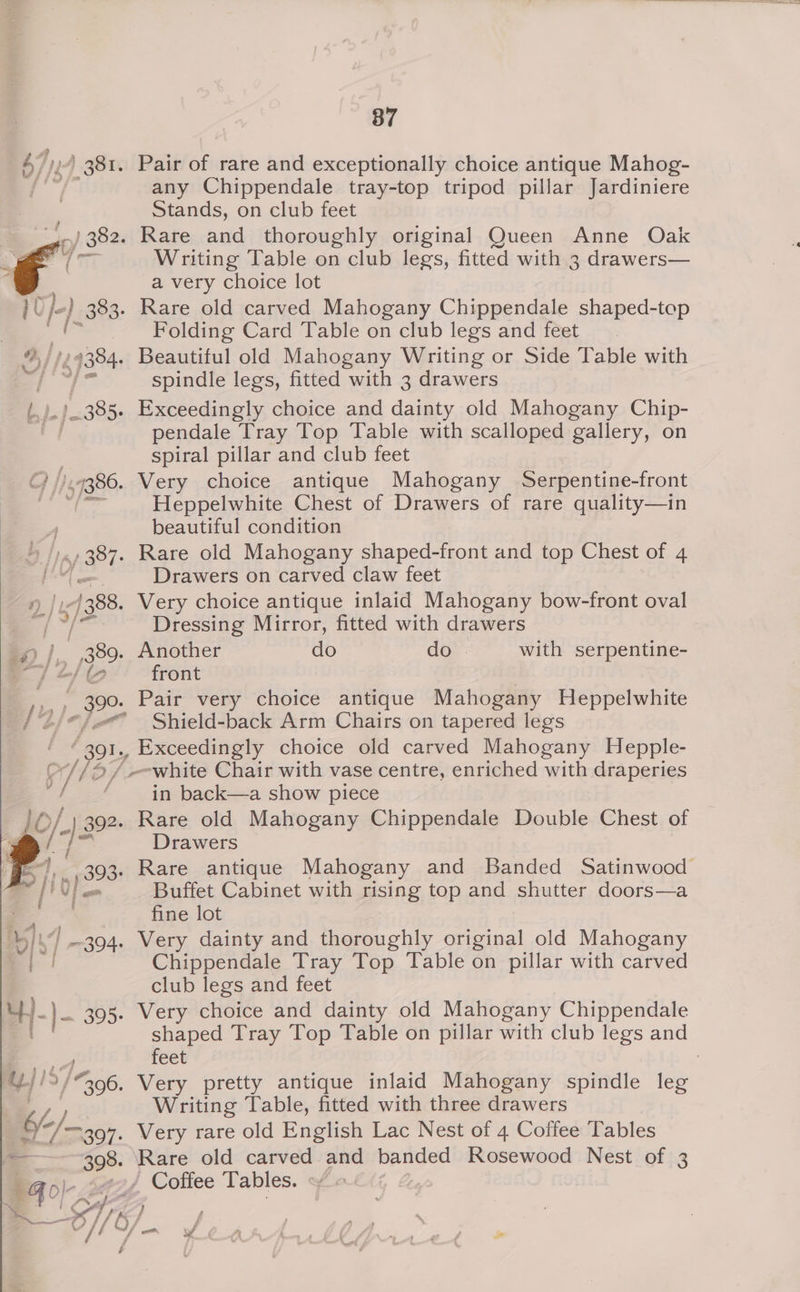 37
381. Pair of rare and exceptionally choice antique Mahog-
any Chippendale tray-top tripod pillar Jardiniere
Stands, on club feet
382. Rare and thoroughly original Queen Anne Oak
Writing Table on club legs, fitted with 3 drawers—
a very choice lot
383. Rare old carved Mahogany Chippendale shaped-top
Folding Card Table on club legs and feet
384. Beautiful old Mahogany Writing or Side Table with
spindle legs, fitted with 3 drawers
385. Exceedingly choice and dainty old Mahogany Chip-
pendale Tray Top Table with scalloped gallery, on
spiral pillar and club feet
386. Very choice antique Mahogany Serpentine-front
Heppelwhite Chest of Drawers of rare quality—in
beautiful condition
387. Rare old Mahogany shaped-front and top Chest of 4
Drawers on carved claw feet
388. Very choice antique inlaid Mahogany bow-front oval
Dressing Mirror, fitted with drawers
389. Another do do with serpentine-
front
390. Pair very choice antique Mahogany Heppelwhite
Shield-back Arm Chairs on tapered legs
391. Exceedingly choice old carved Mahogany Hepple-
white Chair with vase centre, enriched with draperies
in back—a show piece
392. Rare old Mahogany Chippendale Double Chest of
Drawers
393. Rare antique Mahogany and Banded Satinwood
Buffet Cabinet with rising top and shutter doors—a
fine lot
394. Very dainty and thoroughly original old Mahogany
Chippendale Tray Top Table on pillar with carved
club legs and feet
395. Very choice and dainty old Mahogany Chippendale
shaped Tray Top Table on pillar with club legs and
feet
396. Very pretty antique inlaid Mahogany spindle leg
Writing Table, fitted with three drawers
397. Very rare old English Lac Nest of 4 Coffee Tables
398. Rare old carved and banded Rosewood Nest of 3
Coffee Tables.